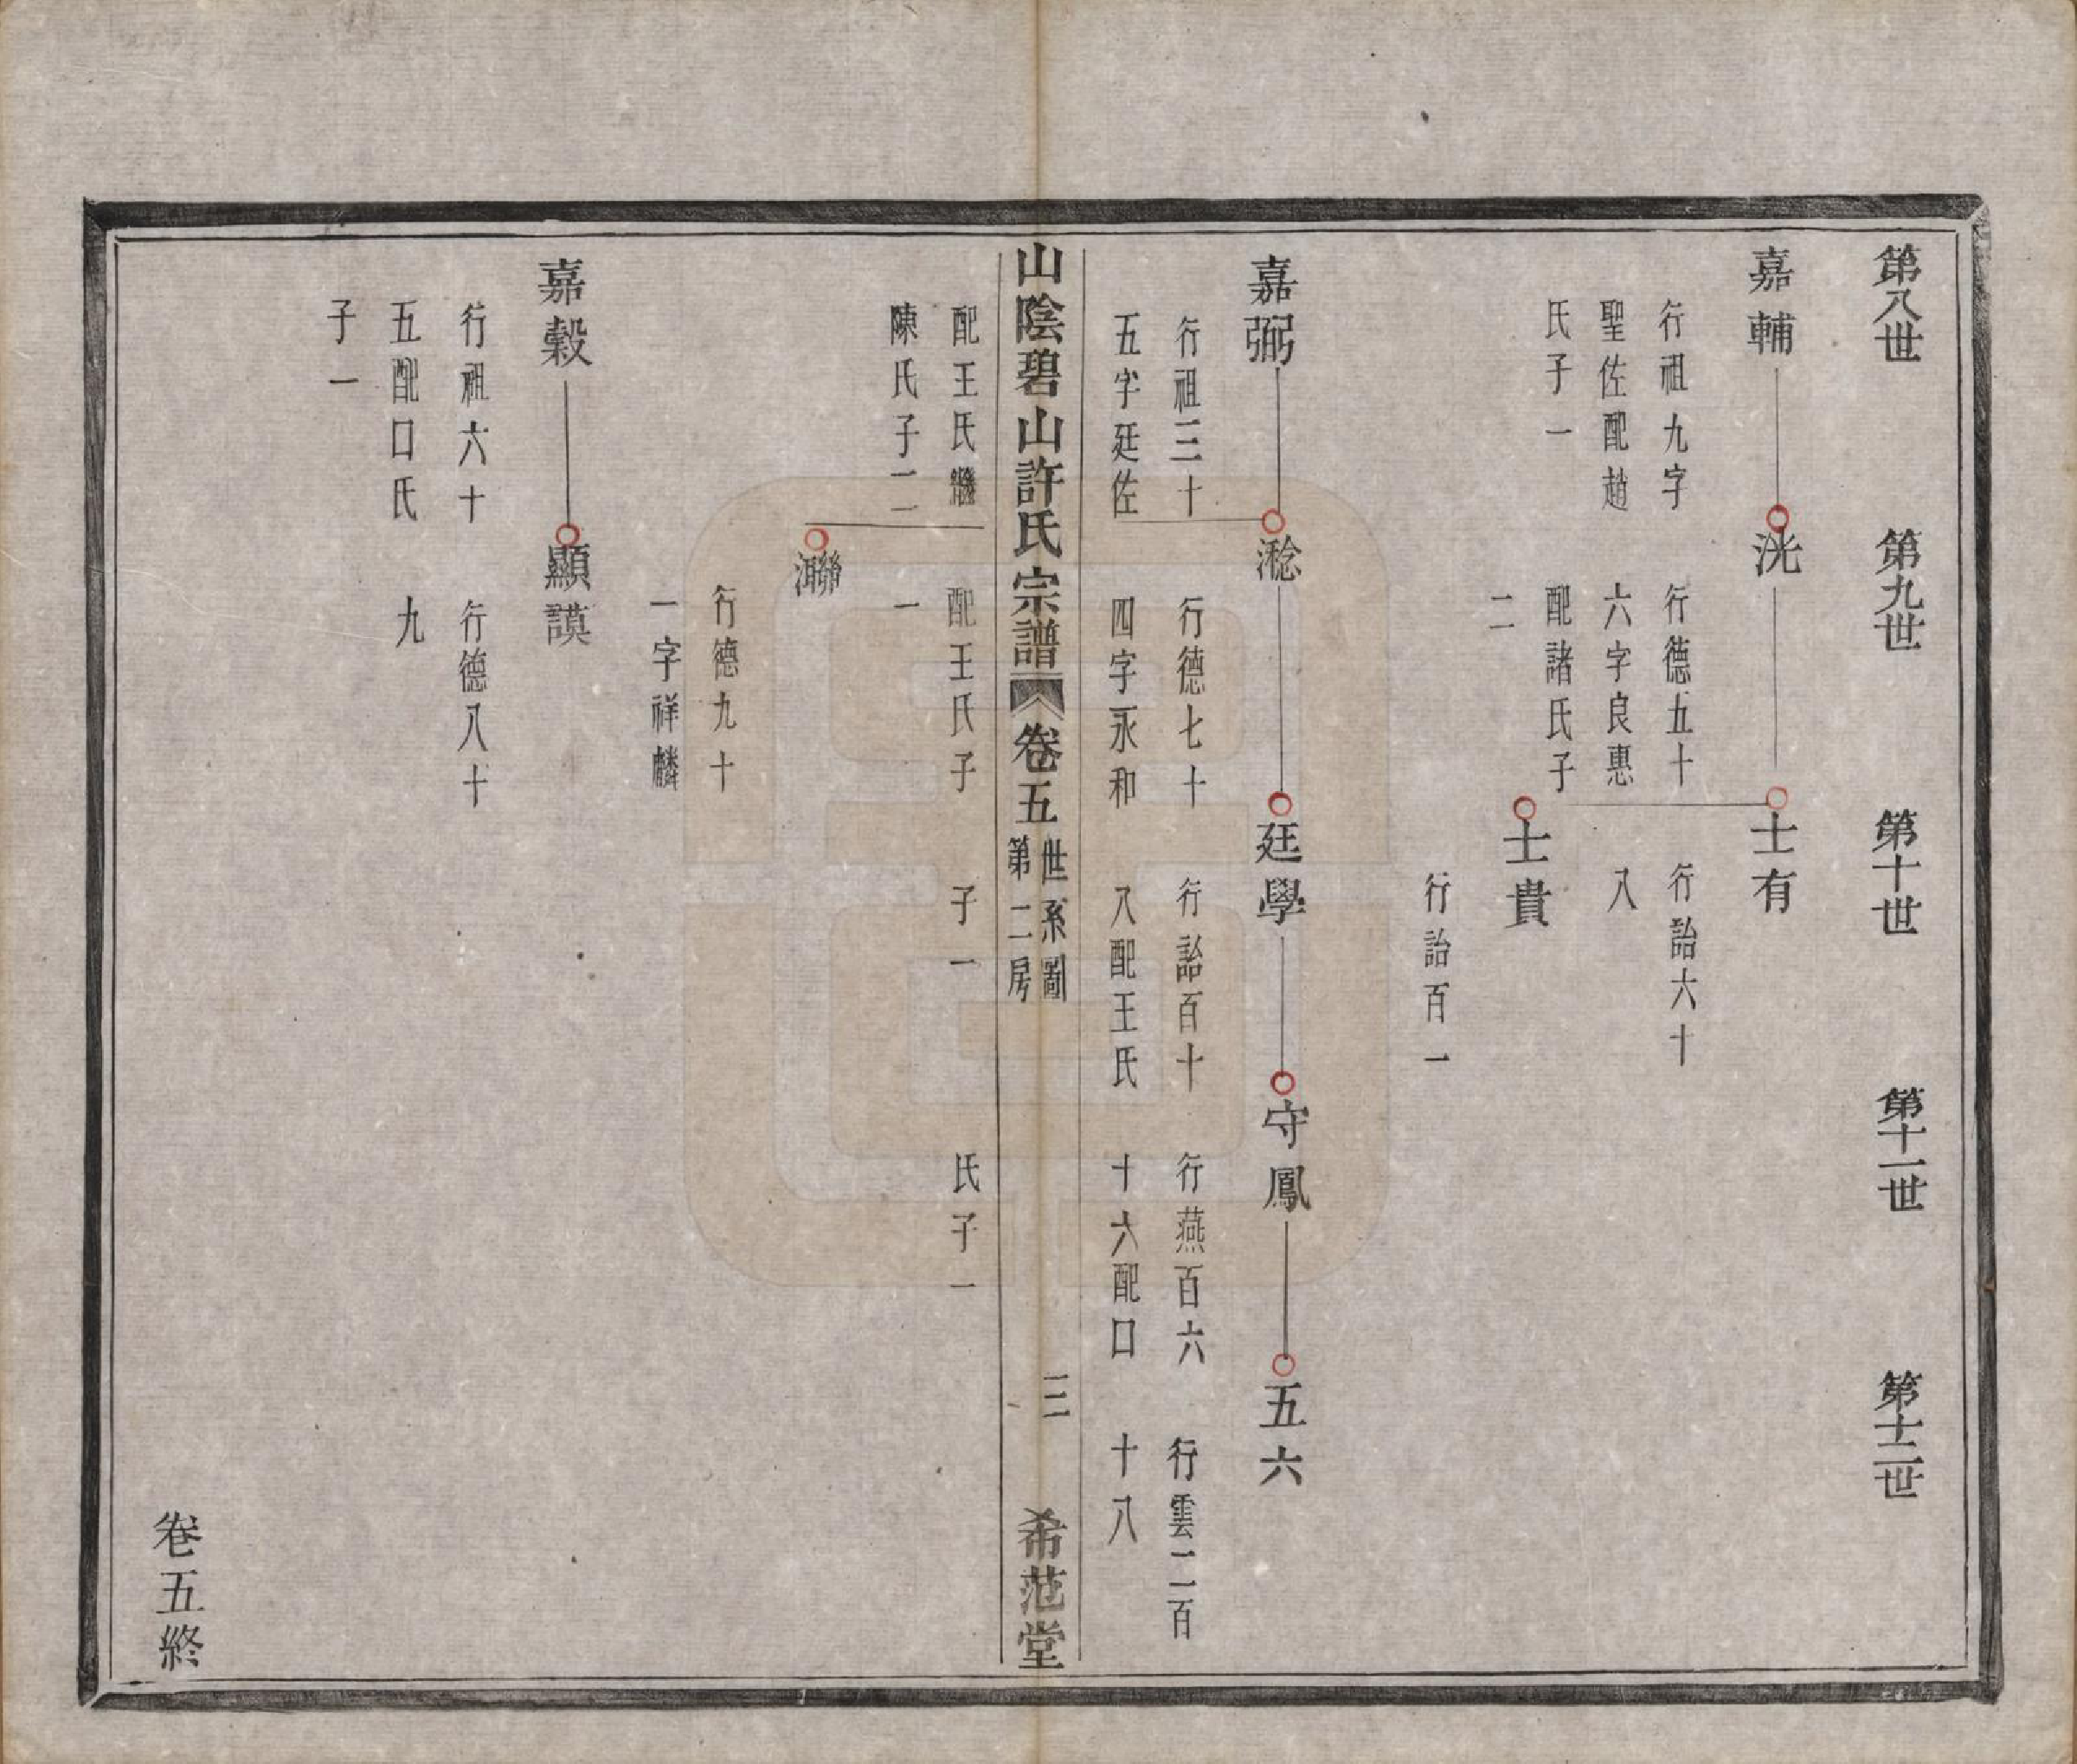 第八世
第九世
第十世
第十一世
第十二世
嘉輔
行祖九字
聖佐配趙
氏子一
洸
行德五十
六字良惠
配諸氏子
二
士有
行詒六十
八
士貴
行詒百一
嘉弼
行祖三十
五字廷佐
配王氏繼
陳氏子二
淰
行德七十
四字永和
配王氏子
一
廷學
行詒百十
八配王氏
子一
守鳳
行燕百六
十六配口
氏子一
五六
行雲二百
十八
山陰碧山許氏宗譜
卷五
世系圖
第二房
三
希范堂
行德九十
一字祥麟
嘉穀
行祖六十
五配口氏
子一
顯謨
行德八十
九
卷五終